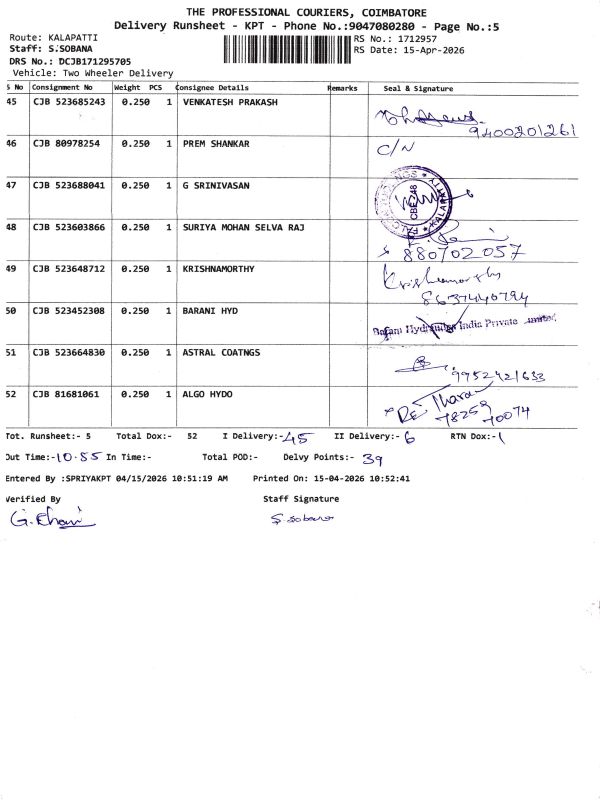 THE PROFESSIONAL COURIERS, COIMBATORE
Delivery Runsheet - KPT - Phone No.:9047080280 - Page No.:5
Route: KALAPATTI RS No.: 1712957
Staff: S.SOBANA RS Date: 15-Apr-2026
DRS No.: DCJB171295705
Vehicle: Two Wheeler Delivery
S No Consignment No Weight PCS Consignee Details Remarks Seal & Signature
45 CJB 523685243 0.250 1 VENKATESH PRAKASH
9400201261
46 CJB 80978254 0.250 1 PREM SHANKAR C/N
47 CJB 523688041 0.250 1 G SRINIVASAN
CBE248
KALAPATTY
48 CJB 523603866 0.250 1 SURIYA MOHAN SELVA RAJ
880702057
49 CJB 523648712 0.250 1 KRISHNAMORTHY Krishnamorthy
8637440794
50 CJB 523452308 0.250 1 BARANI HYD
India Private Limited
51 CJB 523664830 0.250 1 ASTRAL COATNGS
9952421633
52 CJB 81681061 0.250 1 ALGO HYDO
78259
70074
Tot. Runsheet:- 5 Total Dox:- 52 I Delivery:-45 II Delivery:- 6 RTN Dox:-1
Out Time:-10.55 In Time:- Total POD:- Delvy Points:- 39
Entered By :SPRIYAKPT 04/15/2026 10:51:19 AM Printed On: 15-04-2026 10:52:41
Verified By Staff Signature
S.Sobana